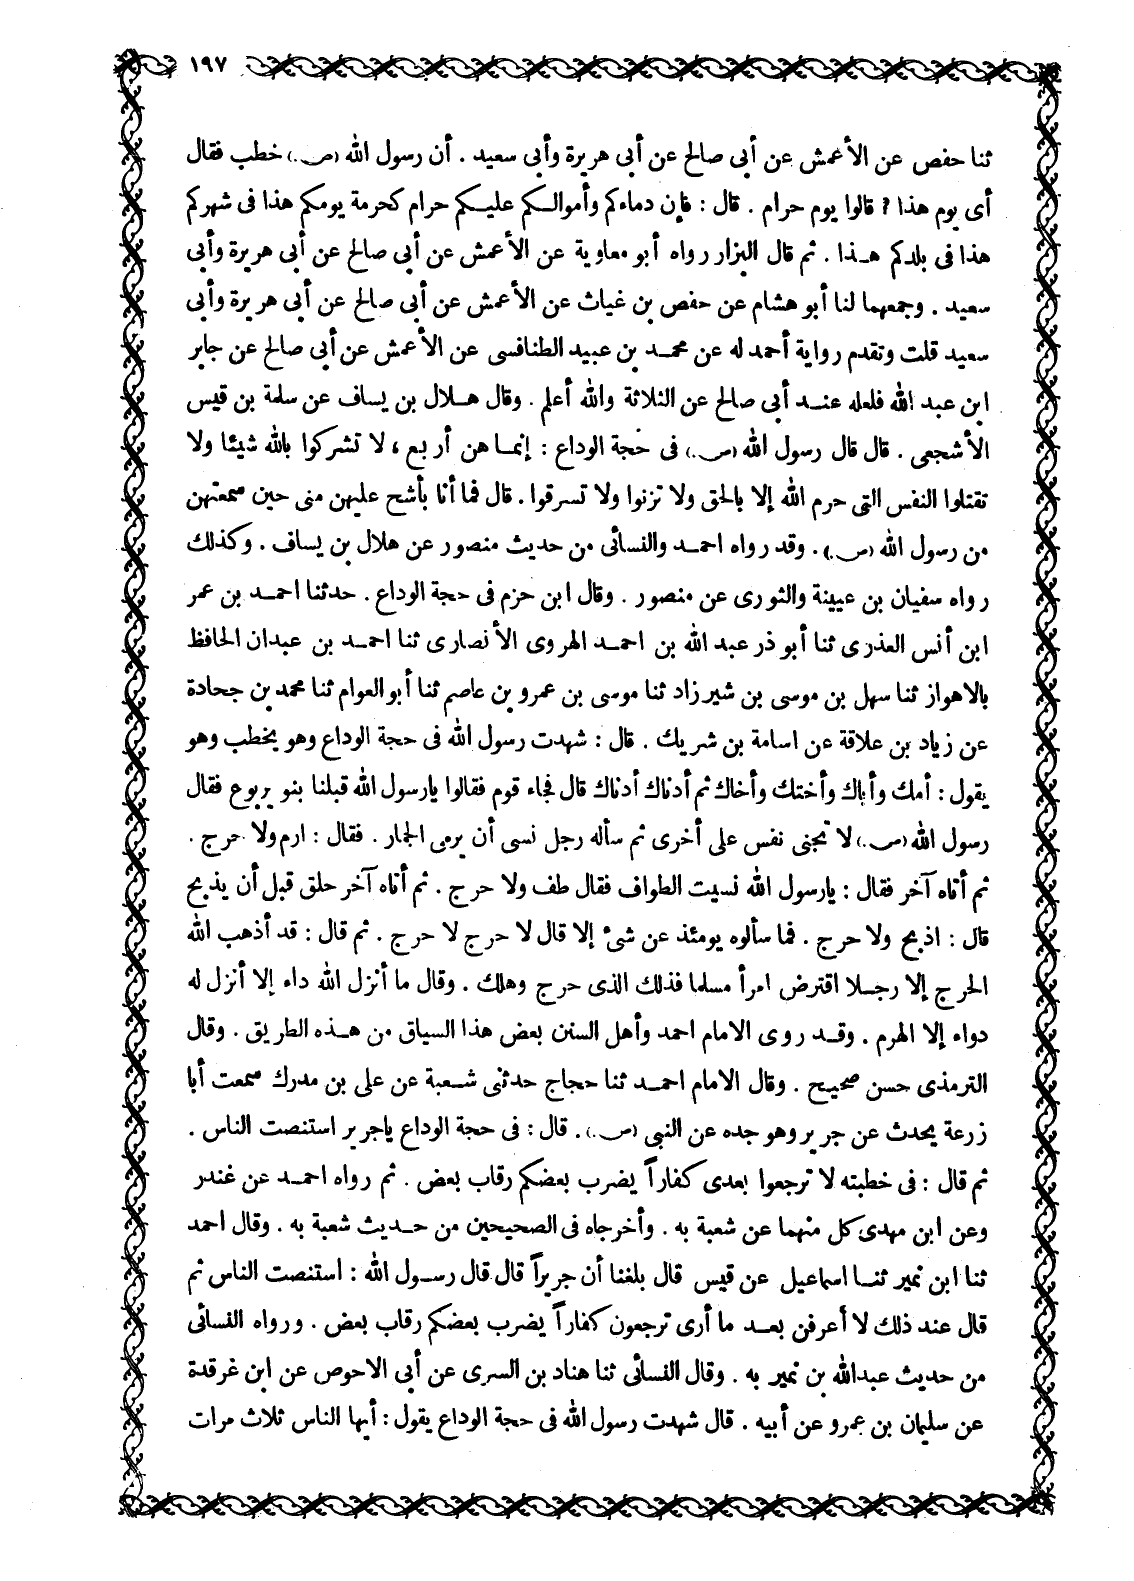 ١٩٧
ثنا حفص عن الأعمش عن أبى صالح عن أبى هريرة وأبى سعيد . أن رسول الله (ص) خطب فقال
أى يوم هذا ؟ قالوا يوم حرام . قال : فإن دماءكم وأموالكم عليكم حرام كحرمة يومكم هذا فى شهركم
هذا فى بلدكم هذا . ثم قال البزار رواه أبو معاوية عن الأعمش عن أبى صالح عن أبى هريرة وأبى
سعيد . وجمعهما لنا أبو هشام عن حفص بن غياث عن الأعمش عن أبى صالح عن أبى هريرة وأبى
سعيد قلت وتقدم رواية أحمد له عن محمد بن عبيد الطنافسى عن الأعمش عن أبى صالح عن جابر
ابن عبد الله فلعله عند أبى صالح عن الثلاثة والله أعلم . وقال هلال بن يساف عن سلمة بن قيس
الأشجعى . قال قال رسول الله (ص) فى حجة الوداع : إنما هن أربع ، لا تشركوا بالله شيئا ولا
تقتلوا النفس التى حرم الله إلا بالحق ولا تزنوا ولا تسرقوا . قال فما أنا بأشح عليهن منى حين سمعتهن
من رسول الله (ص) . وقد رواه احمد والنسائى من حديث منصور عن هلال بن يساف . وكذلك
رواه سفيان بن عيينة والثورى عن منصور . وقال ابن حزم فى حجة الوداع . حدثنا احمد بن عمر
ابن أنس العذرى ثنا أبو ذر عبد الله بن احمد الهروى الأنصارى ثنا احمد بن عبدان الحافظ
بالاهواز ثنا سهل بن موسى بن شيرزاد ثنا موسى بن عمرو بن عاصم ثنا أبو العوام ثنا محمد بن جحادة
عن زياد بن علاقة عن اسامة بن شريك . قال : شهدت رسول الله فى حجة الوداع وهو يخطب وهو
يقول : أمك وأباك وأختك وأخاك ثم أدناك أدناك قال فجاء قوم فقالوا يارسول الله قبلنا بنو يربوع فقال
رسول الله (ص) لا تجنى نفس على أخرى ثم سأله رجل نسى أن يرمى الجمار . فقال : ارم ولا حرج .
ثم أتاه آخر فقال : يارسول الله نسيت الطواف فقال طف ولا حرج . ثم أتاه آخر حلق قبل أن يذبح
قال : اذبح ولا حرج . فما سألوه يومئذ عن شئ إلا قال لا حرج لا حرج . ثم قال : قد أذهب الله
الحرج إلا رجلا اقترض امرأ مسلما فذلك الذى حرج وهلك . وقال ما أنزل الله داء إلا أنزل له
دواء إلا الهرم . وقد روى الامام احمد وأهل السنن بعض هذا السياق من هذه الطريق . وقال
الترمذى حسن صحيح . وقال الامام احمد ثنا حجاج حدثنى شعبة عن على بن مدرك سمعت أبا
زرعة يحدث عن جرير وهو جده عن النبى (ص) . قال : فى حجة الوداع ياجرير استنصت الناس .
ثم قال : فى خطبته لا ترجعوا بعدى كفاراً يضرب بعضكم رقاب بعض . ثم رواه احمد عن غندر
وعن ابن مهدى كل منهما عن شعبة به . وأخرجاه فى الصحيحين من حديث شعبة به . وقال احمد
ثنا ابن نمير ثنا اسماعيل عن قيس قال بلغنا أن جريراً قال قال رسول الله : استنصت الناس ثم
قال عند ذلك لا أعرفن بعد ما أرى ترجعون كفاراً يضرب بعضكم رقاب بعض . ورواه النسائى
من حديث عبدالله بن نمير به . وقال النسائى ثنا هناد بن السرى عن أبى الاحوص عن ابن غرقدة
عن سليمان بن عمرو عن أبيه . قال شهدت رسول الله فى حجة الوداع يقول : أيها الناس ثلاث مرات